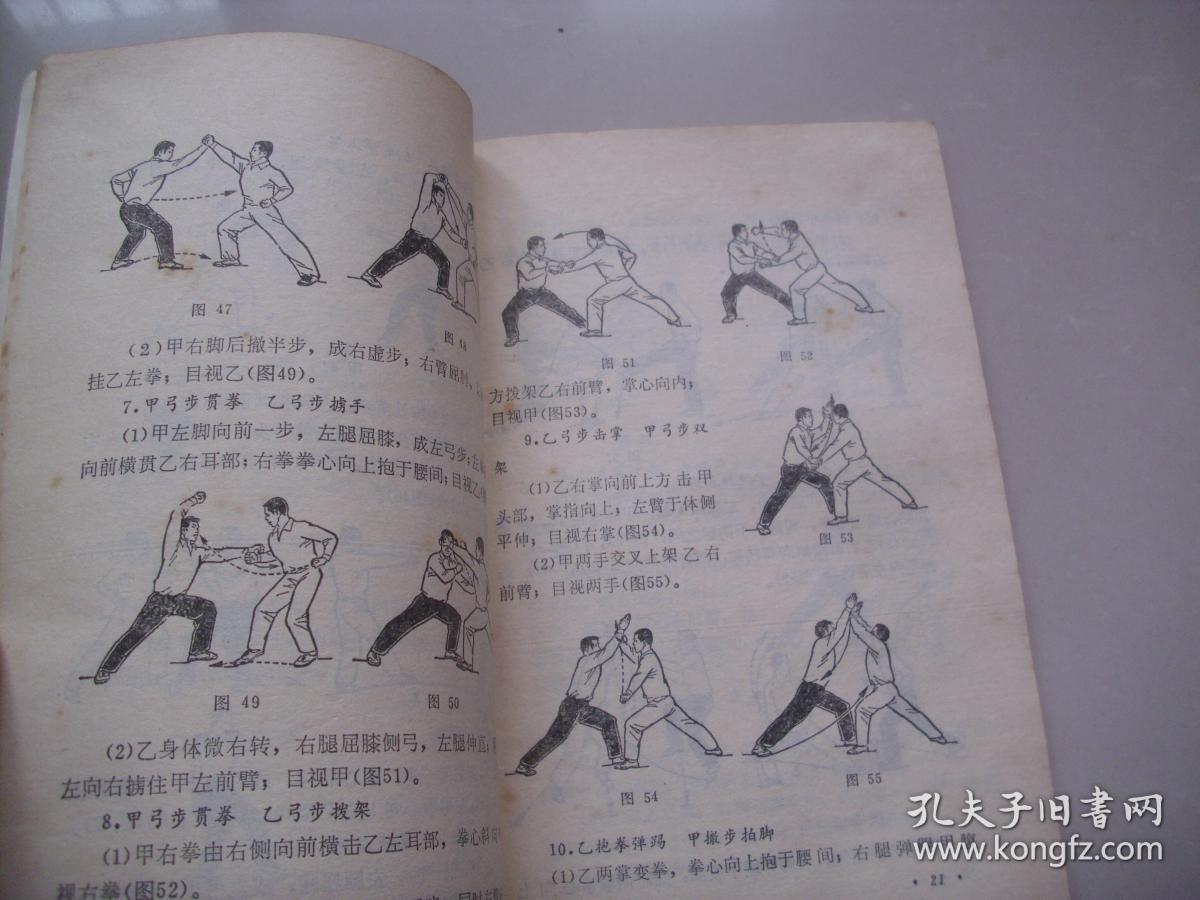 图 47
图 48
(2)甲右脚后撤半步，成右虚步；右臂屈肘，
挂乙左拳；目视乙(图49)。
7.甲弓步贯拳 乙弓步掳手
(1)甲左脚向前一步，左腿屈膝，成左弓步；左
向前横贯乙右耳部；右拳拳心向上抱于腰间；目视乙
图 49
图 50
(2)乙身体微右转，右腿屈膝侧弓，左腿伸直；
左向右掳住甲左前臂；目视甲(图51)。
8.甲弓步贯拳 乙弓步拨架
(1)甲右拳由右侧向前横击乙左耳部，拳心斜向
视右拳(图52)。
图 51
图 52
方拨架乙右前臂，掌心向内；
目视甲(图53)。
9.乙弓步击掌 甲弓步双
架
(1)乙右掌向前上方击甲
头部，掌指向上；左臂于体侧
平伸；目视右掌(图54)。
(2)甲两手交叉上架乙右
前臂；目视两手(图55)。
图 53
图 54
图 55
10.乙抱拳弹踢 甲撤步拍脚
(1)乙两掌变拳，拳心向上抱于腰间；右腿弹
·21·
孔夫子旧书网
www.kongfz.com